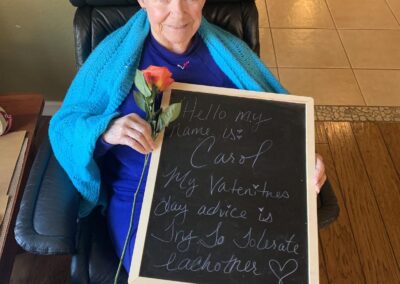 Hello my
name is:
Carol
My Vatenitnes
day advice is
Try To Tolerate
eachother ♡